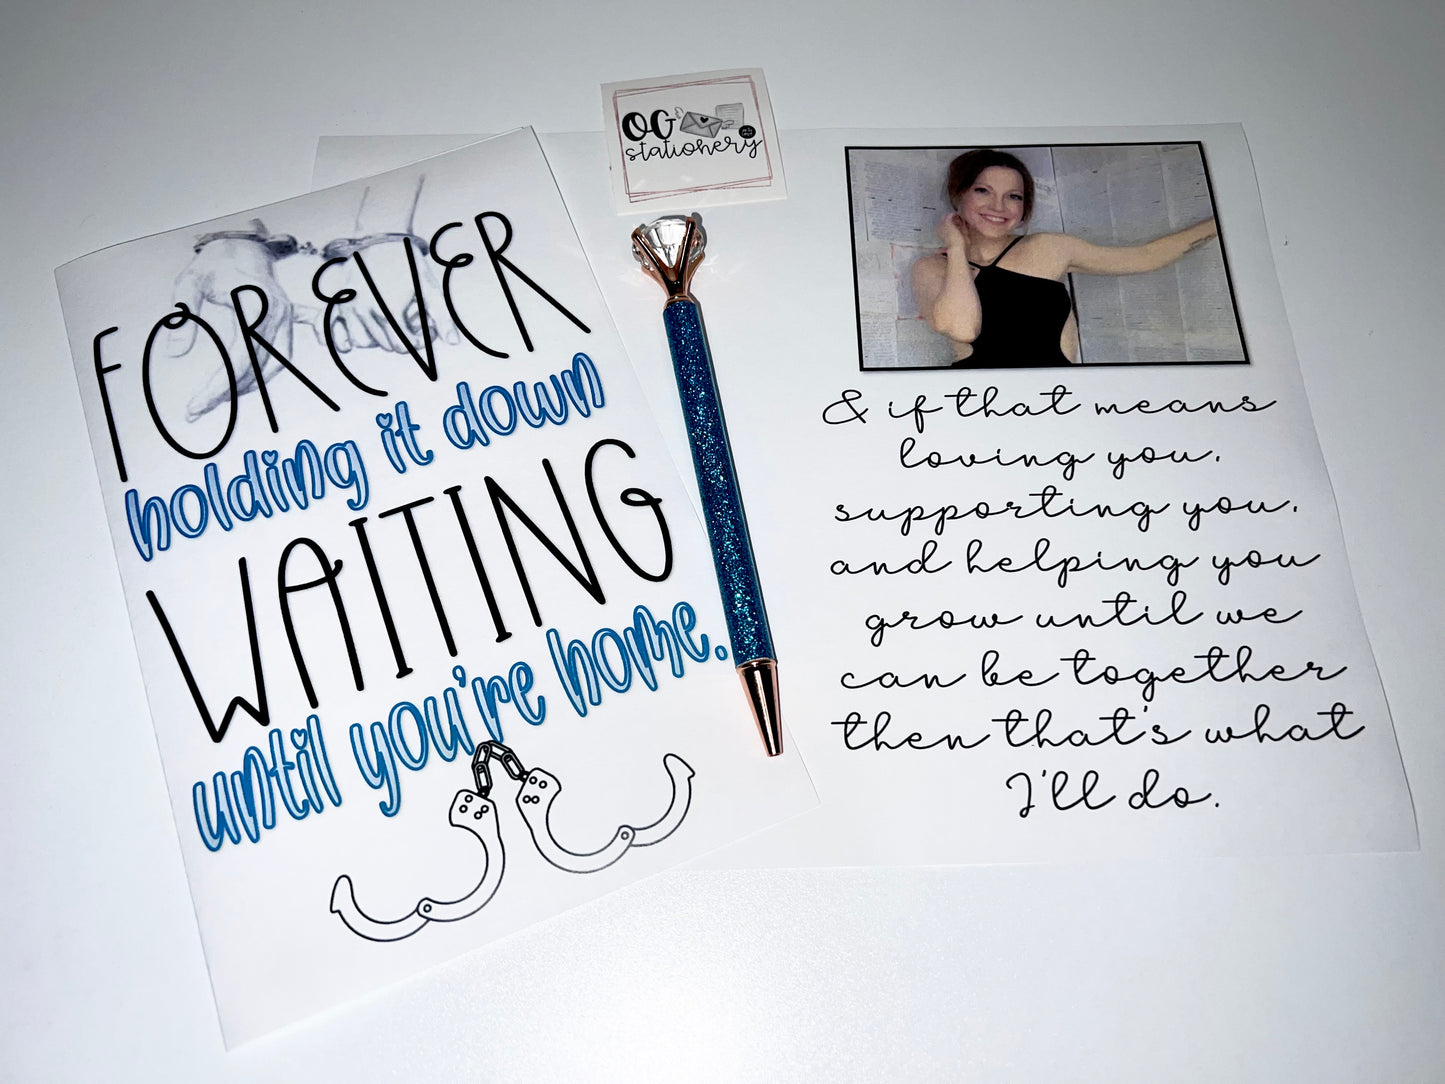 FOREVER
holding it down
WAITING
until you're home.
OG
stationery
& if that means
loving you,
supporting you,
and helping you
grow until we
can be together
then that's what
I'll do.